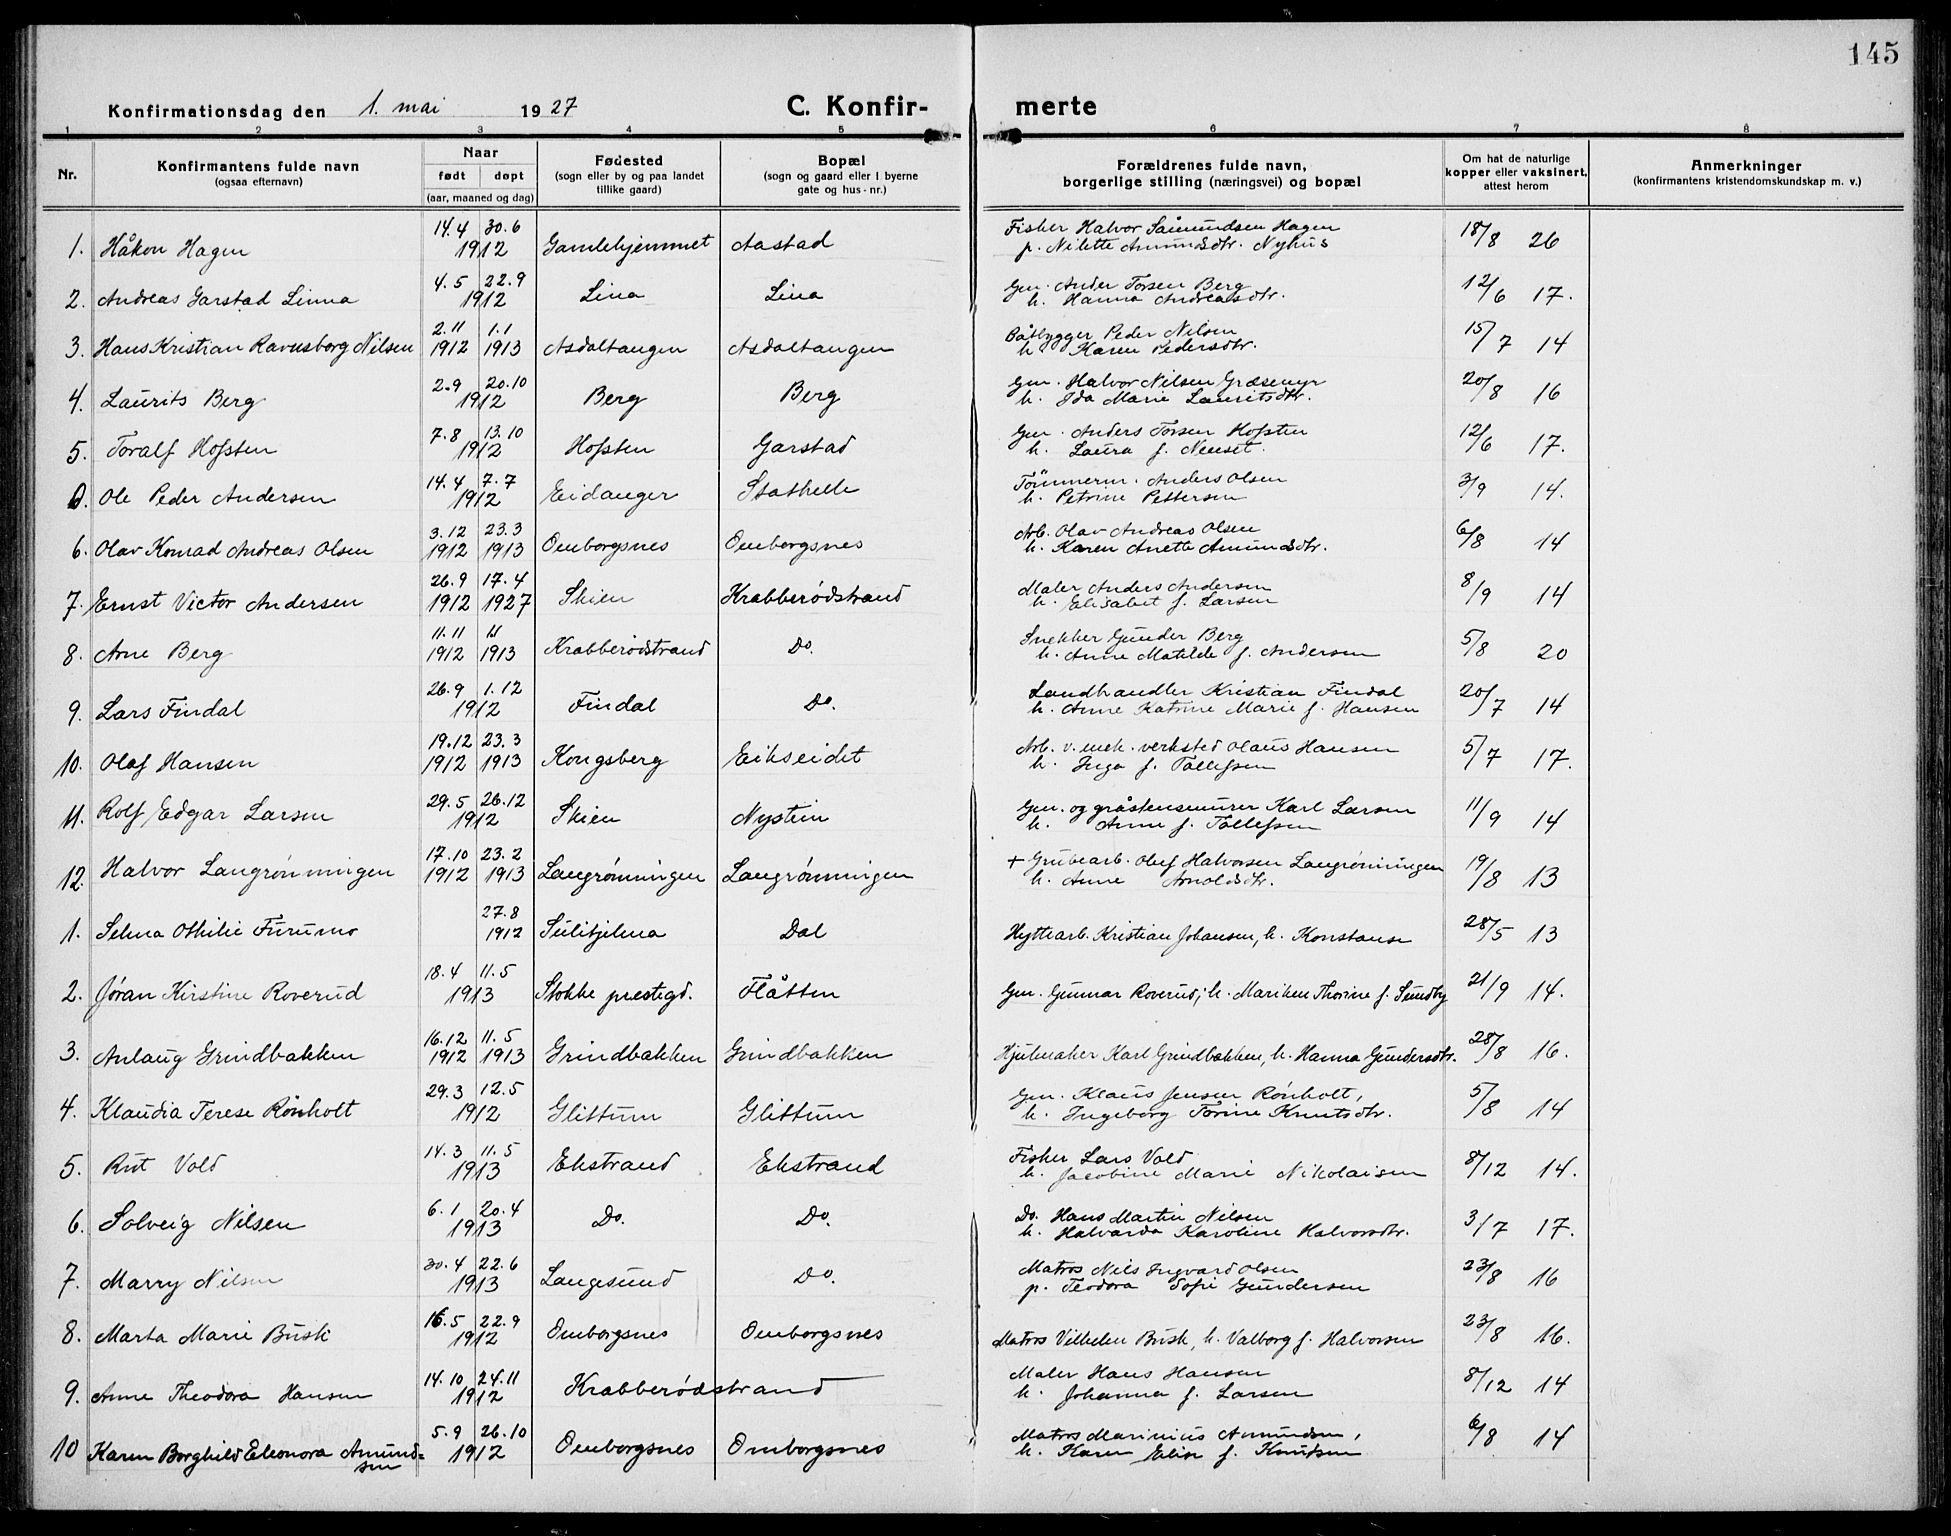 145
Konfirmationsdag den 1. mai 1927 C. Konfir- merte
1 2 3 4 5 6 7 8
Nr. Konfirmantens fulde navn (ogsaa efternavn) Naar født døpt (aar, maaned og dag) Fødested (sogn eller by og paa landet tillike gaard) Bopæl (sogn og gaard eller i byerne gate og hus-nr.) Forældrenes fulde navn, borgerlige stilling (næringsvei) og bopæl Om hat de naturlige kopper eller vaksinert, attest herom Anmerkninger (konfirmantens kristendomskundskap m. v.)
14.4 30.6 Fisker Halvor Såmundsen Hagen
1. Håkon Hagen 1912 Gamlehjemmet Aastad p. Nilette Amundsdtr. Nyhus 18/8 26
4.5 22.9 Gm. Ander Torsen Berg
2. Andreas Garstad Linna 1912 Lina Lina h. Hanna Andreasdtr. 12/6 17.
2.11 1.1 Båtbygger Peder Nilsen
3. Hans Kristian Ravnsborg Nilsen 1912 1913 Asdaltangen Asdaltangen h. Karen Pedersdtr. 15/7 14
2.9 20.10 Gm. Halvor Nilsen Græsemyr
4. Laurits Berg 1912 Berg Berg h. Ida Marie Lauritsdtr. 20/8 16
7.8 13.10 Gm. Anders Torsen Hofsten
5. Toralf Hofsten 1912 Hofsten Garstad h. Laura f. Nenset. 12/6 17.
14.4 7.7 Tömmerm. Anders Olsen
Ole Peder Andersen 1912 Eidanger Stathelle h. Petrine Pettersen 3/9 14.
3.12 23.3 Arb. Olav Andreas Olsen
6. Olav Konrad Andreas Olsen 1912 1913 Omborgsnes Omborgsnes h. Karen Anette Amundsdtr. 6/8 14
26.9 17.4 Maler Anders Andersen
7. Ernst Victor Andersen 1912 1927 Skien Krabberødstrand h. Elisabet f. Larsen 8/9 14
11.11 Snekker Gunder Berg
8. Arne Berg 1912 1913 Krabberødstrand Do. h. Anne Matilde f. Andersen 5/8 20
26.9 1.12 Landhandler Kristian Findal
9. Lars Findal 1912 Findal Do. h. Anne Katrine Marie f. Hansen 20/7 14
19.12 23.3 Arb. v. mek. verksted Olaus Hansen
10. Olaf Hansen 1912 1913 Kongsberg Eikseidet h. Inga f. Tollefsen 5/7 17.
29.5 26.12 Gm. og gråstensmurer Karl Larsen
11. Rolf Edgar Larsen 1912 Skien Nystein h. Anne f. Tollefsen 11/9 14
17.10 23.2 + Grubearb. Oluf Halvorsen Langrønningen
12. Halvor Langrønningen 1912 1913 Langrønningen Langrønningen h. Anne Arnoldsdtr. 19/8 13
27.8
1. Selma Othilie Furumo 1912 Sulitjelma Dal Hyttearb. Kristian Johansen, h. Konstanse 28/5 13
18.4 11.5
2. Jøran Kirstine Roverud 1913 Stokke prestegd. Flåtten Gm. Gunnar Roverud; h. Mariken Thorine f. Sundby 21/9 14.
16.12 11.5
3. Anlaug Grindbakken 1912 1913 Grindbakken Grindbakken Hjulmaker Karl Grindbakken, h. Hanna Gundersdtr. 28/8 16.
29.3 12.5 Gm. Klaus Jensen Rønholt,
4. Klaudia Terese Rønholt 1912 Glittum Glittum h. Ingeborg Torine Knutsdtr. 5/8 14
14.3 11.5 Fisker Lars Vold
5. Rut Vold 1913 Ekstrand Ekstrand h. Jacobine Marie Nikolaisen 8/12 14.
6.1 20.4 Do. Hans Martin Nilsen
6. Solveig Nilsen 1913 Do. Do. h. Halvarda Karoline Halvorsdtr. 3/7 17.
30.4 22.6 Matros Nils Ingvard Olsen
7. Marry Nilsen 1913 Langesund Do. p. Teodora Sofie Gundersen 23/8 16
16.5 22.9
8. Marta Marie Busk 1912 Omborgsnes Omborgsnes Matros Vilhelm Busk, h. Valborg f. Halvorsen 23/8 16.
14.10 24.11 Maler Hans Hansen
9. Anne Theodora Hansen 1912 Krabberødstrand h. Johanna f. Larsen 8/12 14
5.9 26.10 Matros Marinius Amundsen,
10 Karen Borghild Eleonora Amund=sen 1912 Omborgsnes Omborgsnes h. Karen Elise f. Knutsen 6/8 14